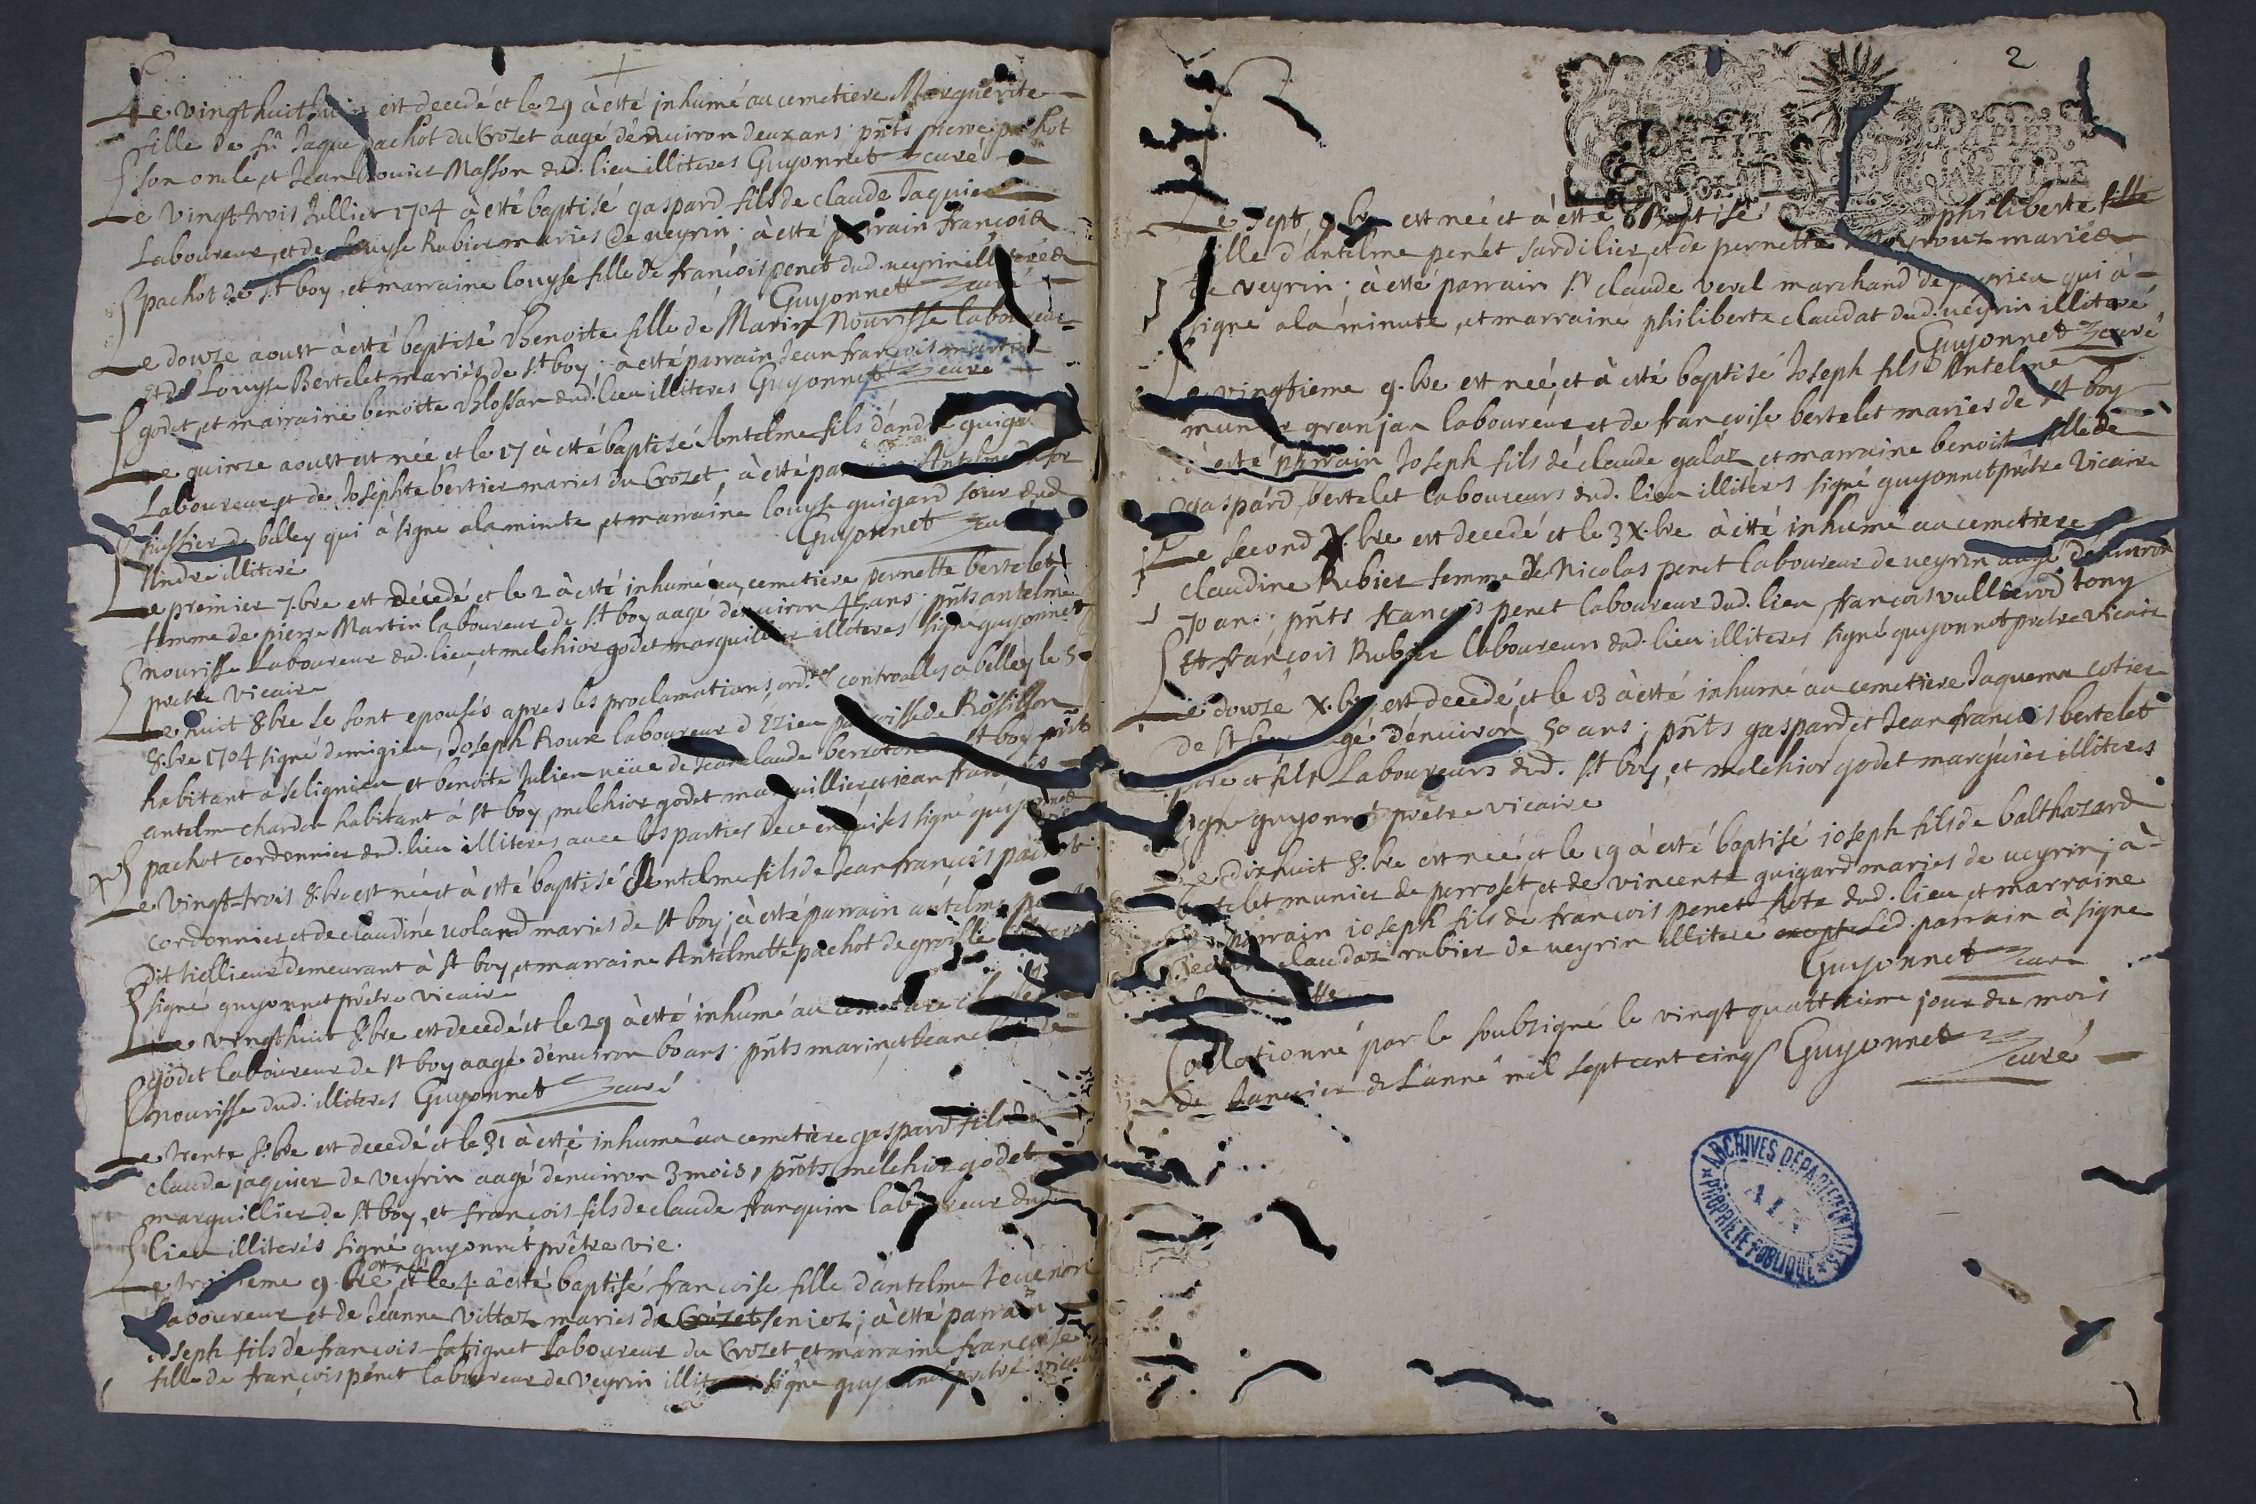 Le vingt huit Juin est decedé et le 29 à esté inhumé au cemetiere Marguerite
fille de fû Jaque pachot du Crozet aagé dénuiron deux ans pñts pierre pachot
son oncle, et Jean bouvier Masson dud. lieu illiteres Guyonnet curé
Le vingt trois Jullier 1704 à esté baptisé gaspard fils de claude Jaquier
Laboureur, et de Louyse Rubier maries de veyrin à esté parrain françois
pachot de st boy, et marraine louyse fille de françois penet dud. veyrin illiteres
Guyonnet curé
Le douze aoust à esté baptisé Benoite fille de Marin Nourisse laboureur
et de Louyse Bertelet mariés de st boy; à esté parrain Jean françois martin
godet, et marraine benoite Blossan dud. lieu illiteres Guyonnet curé
Le quinze aoust est née et le 17 à esté baptisé Antelme fils d'andré guigard
Laboureur, et de Josephte bertier maries du Crozet, à esté parrain Antelme
huissier de belley qui à signe a la minute, et marraine louyse guigard soeur dud
Andre illiteré Guyonnet curé
Le premier 7.bre est décédé et le 2 à esté inhumé au cemetiere pernette bertelet
femme de pierre Martin laboureur de st boy aagé denuiron 45 ans; pñts antelme
nourisse Laboureur dud. lieu, et melchior godet marguillier illiteres signe guyonnet
pretre vicaire
Le huit 8.bre se sont epousés apres les proclamations, ord.res controalles a belley le 5
8.bre 1704 signé demigieu, Joseph Roux laboureur d Ezieu paroisse de Rossillon
habitant a selignieu et benoite Julien veüe de Jean claude berroton de st boy pñts
antelm chardon habitant à st boy, melchior godet marguillier et jean françois
pachot cordonnier dud. lieu illiteres avec les parties de ce enquises signé guyonnet
Le vingt-trois 8.bre est née et à esté baptisé Antelme fils de Jean françois pachot
cordonnier, et de claudine voland maries de st boy; à esté parrain antelme
dit tiellieur demeurant à st boy, et marraine Antelmette pachot de groslle
signe guyonnet prêtre vicaire
Le vingt huit 8.bre est decedé et le 29 à esté inhumé au cemetiere
godet laboureur de st boy aage d'enuiron 60 ans. pñts marin, et Jean
nourisse dud. illiteres Guyonnet curé
Le trente 8.bre est decedé et le 31 à esté inhumé au cemetiere gaspard fils de
claude jaquier de veyrin aagé denuiron 3 mois, pñts melchior godet
marguillier de st boy, et françois fils de claude franquin laboureur dud
lieu illiterés signé guyonnet prêtre vic.
Le troisieme 9.bre est né et le 4 à esté baptisé françoise fille d'antelme Teuenon
laboureur et de Jeanne Vittoz maries de Crozet seniez; à esté parrain
Joseph fils de françois fatignet Laboureur du Crozet et marraine françoise
fille de françois pénet laboureur de veyrin illiteres signe guyonnet prêtre vicaire
2
PETIT PAPIER
Le sept 9.bre est née et à esté Baptisé philiberte fille
fille d'antelme penet sardilier, et de pernette mariés
de veyrin; à esté parrain sr claude verel marchand de peyrieu qui à
signé a la minute, et marraine philiberte claudat dud. veyrin illiteré
Guyonnet curé
Le vingtieme 9.bre est neé, et à esté baptisé Joseph fils d Antelme
munier granjan laboureur et de françoise bertelet maries de st boy
à esté parrain Joseph fils dé claude galaz, et marraine benoite fille de
gaspard bertelet laboureurs dud. lieu illiteres signé guyonnet prêtre vicaire
Le second X.bre est decedé et le 3 X.bre à esté inhumé au cemetiere
claudine Rubier femme de Nicolas penet laboureur de veyrin aagé denuiron
70 ans; pñts françois penet laboureur dud. lieu, françois vullierod tony
et françois Rubier laboureurs dud. lieu illiteres signé guyonnet pretre vicaire
Le douze X.bre est decedé et le 13 à esté inhumé au cemetiere Jaquema cotier
de st boy aagé d'énuiron 50 ans; pñts gaspard et Jean françois bertelet
pere et fils Laboureurs dud. st boy, et melchior godet marguier illiteres
signe guyonnet prêtre vicaire
Le dix huit 8.bre est née et le 19 à esté baptisé joseph fils de balthazard
bertelet munier de perroset, et de vincente guigard maries de veyrin; à
esté parrain joseph fils dé françois penet hote dud. lieu et marraine
claudaz rubier de veyrin illiteré excepté led. parrain à signe
a la minutte Guyonnet curé
Collationné par le soubsigné le vingt quattrieme jour du mois
de Januier de L'anné mil sept cent cinq Guyonnet
curé
ARCHIVES DÉPARTEMENTALES
AIN
PROPRIÉTÉ PUBLIQUE